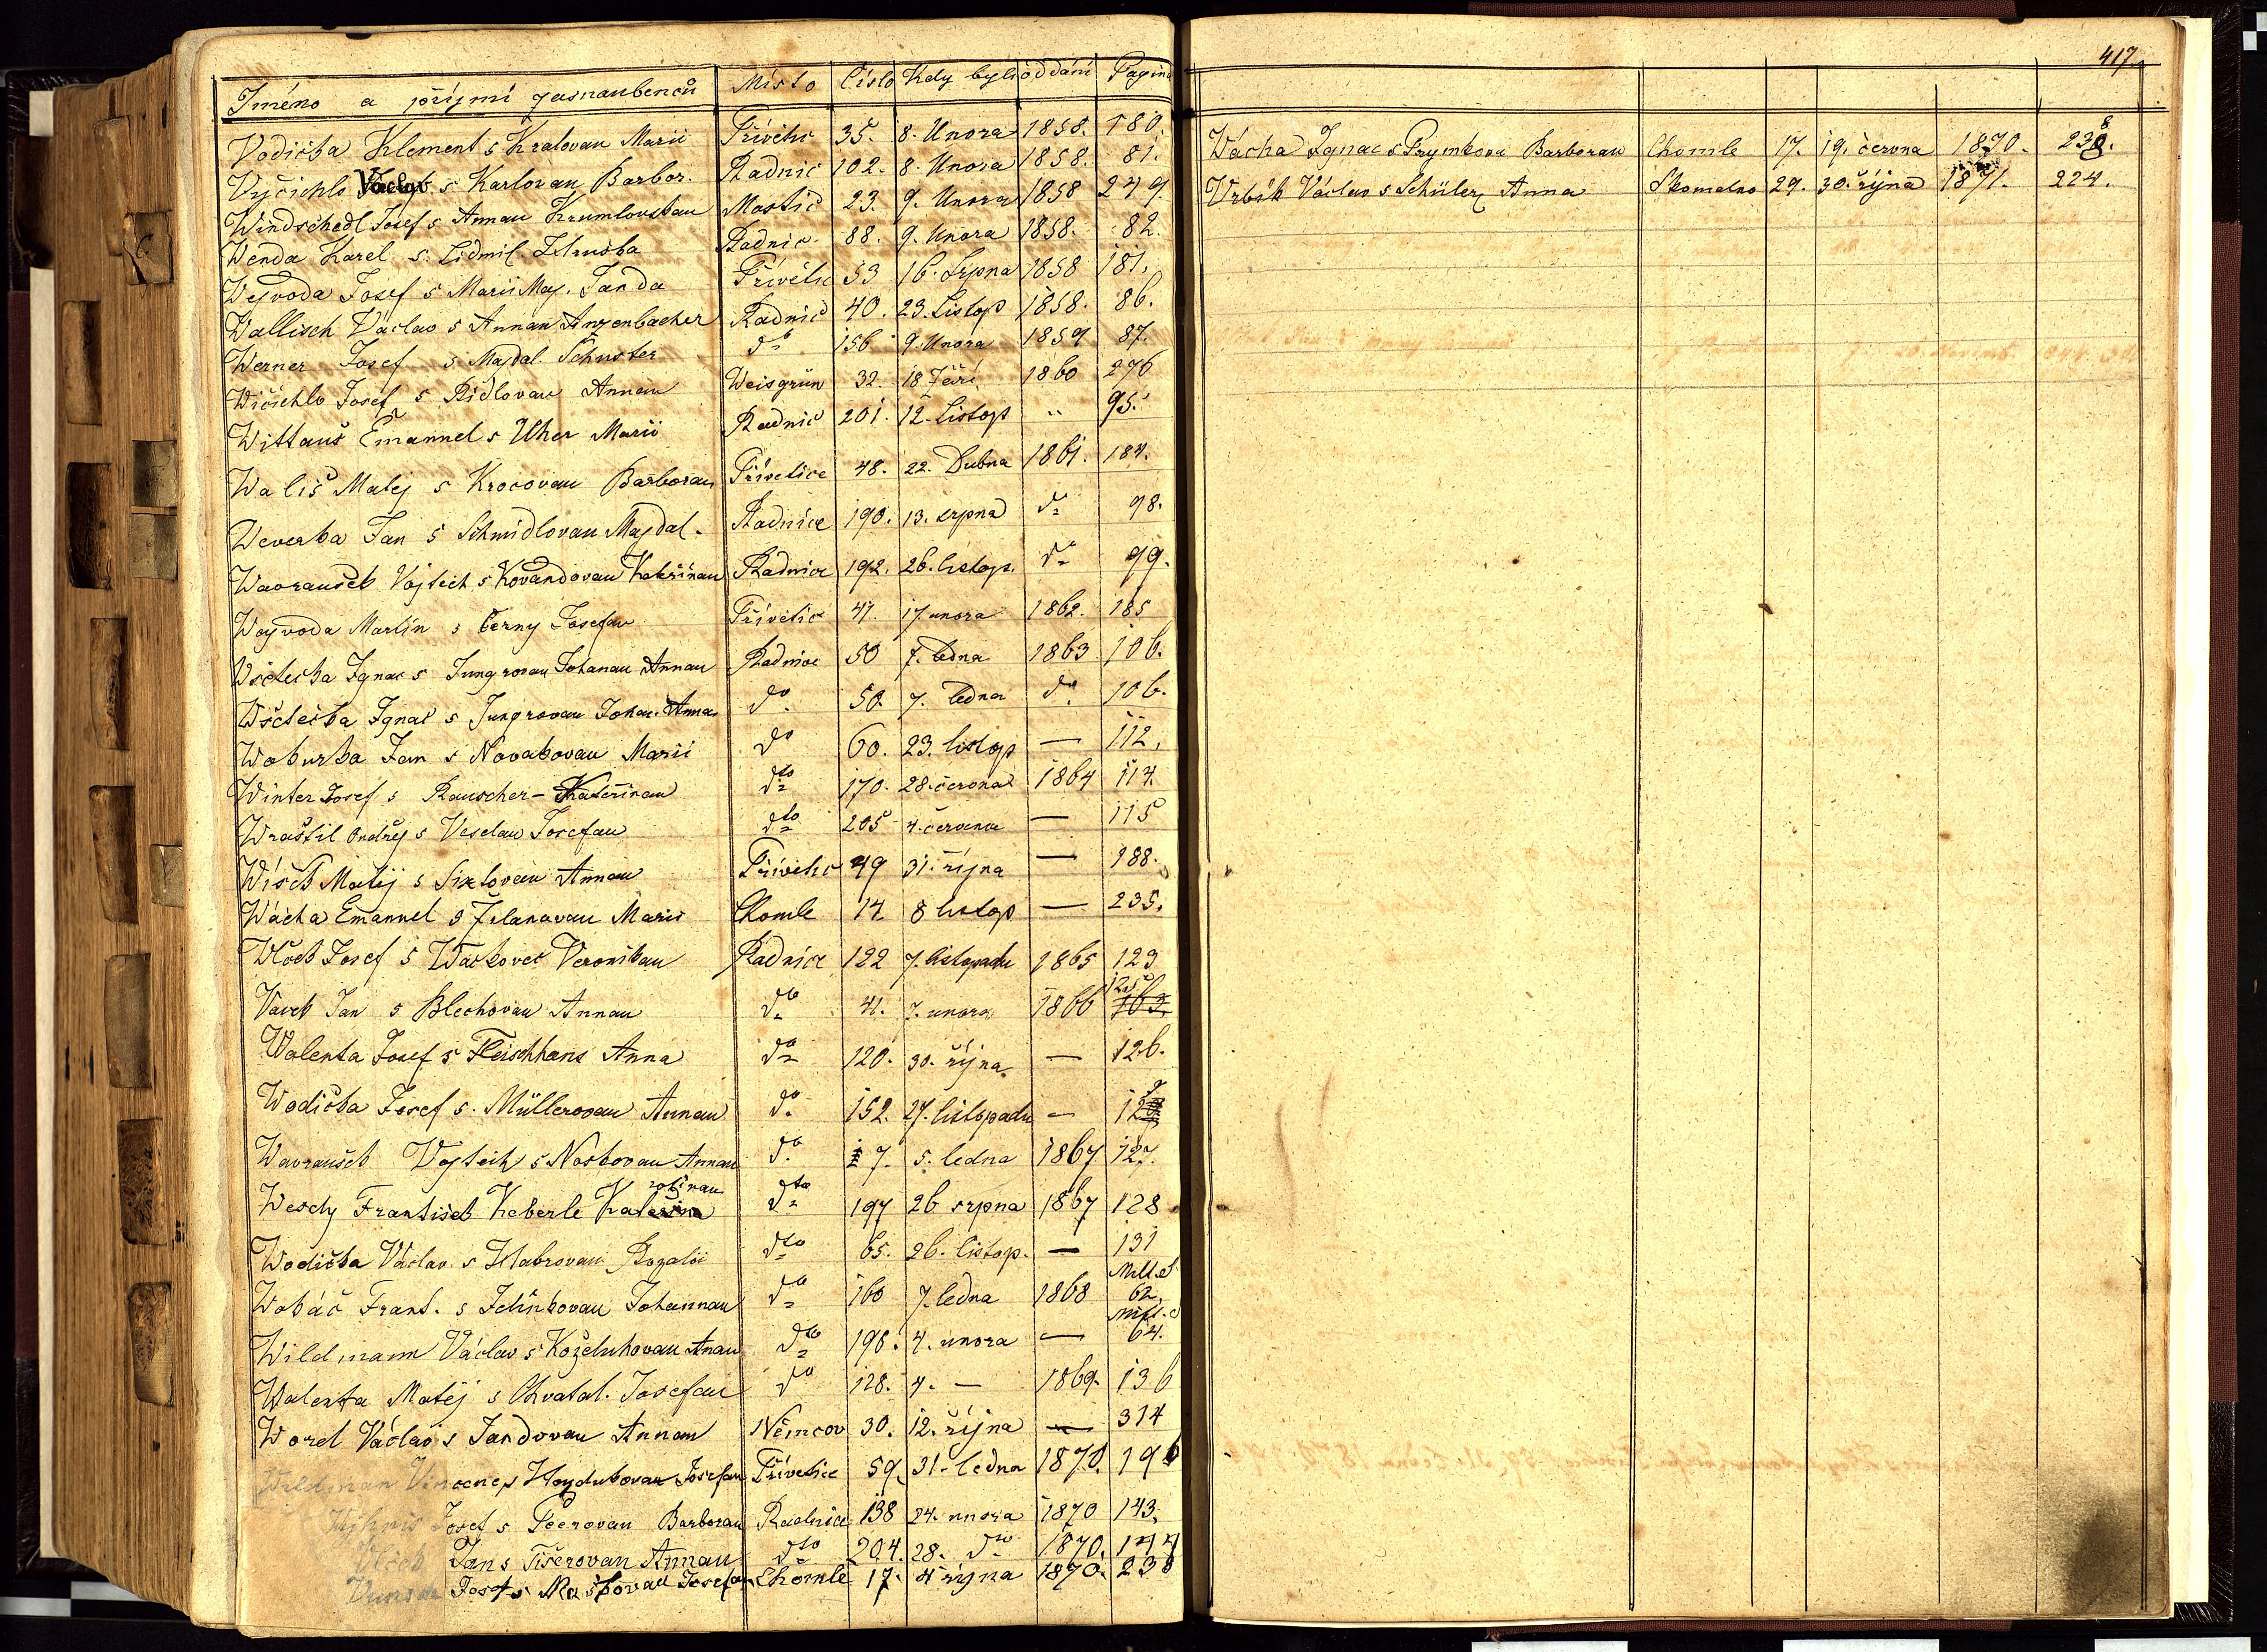 Jméno a příjmí zasnaubenců Místo Číslo Kdy byli oddáni Pagina
Vodička Klement s Kralovau Marii Přívětic 35. 8. Unora 1858. 180.
Vyčichlo Václav s Karlovau Barbor. Radnic 102. 8. Unora 1858. 81.
Windschedl Josef s Annau Krumlovskau Mostic 23. 9. Unora 1858 249.
Wenda Karel s. Lidmil. Hruška Radnic 88. 9. Unora 1858. 82.
Wejvoda Josef s Marii Maj. Janda Přívětic 53 16. Srpna 1858 181.
Wallisch Václav s Annau Anzenbacher Radnic 40. 23. Listop 1858. 86.
Werner Josef s Majdal. Schuster do 156 9. Unora 1859 87.
Wičichlo Josef s Ridlovau Annau Weisgrün 32. 18 Září 1860 276
Wittauš Emanuel s Uher Marii Radnic 201. 12. Listop " 95.
Wališ Matej s Krocovau Barborau Přívetice 48. 22. Dubna 1861. 184.
Weverka Jan s Schmidlovau Majdal. Radnice 190. 13. srpna do 98.
Wavraušek Vojtěch s Kovandovau Kateřinau Radnice 192. 26. listop. do 99.
Wayvoda Martin s Černy Josefau Přívětic 41. 17. unora 1862. 185
Wštečka Ignac s Jungrovau Johanau Annau Radnice 50 7. ledna 1863 106.
Wštečka Ignac s Jungrovau Johan. Anna do 50. 7. ledna do 106.
Wokurka Jan s Novakovau Marii do 60. 23. listop — 112.
Winter Josef s Rauscher - Kateřinau dto 170. 28. června 1864 114.
Wraštil Ondřej s Veselau Josefau dto 205 4. července — 115
Wíšek Matěj s Sixtovau Annau Přívětic 49 31. října — 188.
Wácha Emanuel s Marii Chomle 14 8 listop — 235.
Wlček Josef s Wackovec Veronikau Radnice 122 7. listopadu 1865 123
Vavek Jan s Blechovau Annau do 41. 7. unora 1866 125
Walenta Josef s Fleischhans Anna do 120. 30. října — 126.
Wodička Josef s. Müllerovau Annau do 152. 27. listopadu — 127
Wavraušek Vojtěch s Noskovau Annau do 7. 5. ledna 1867 127.
Wesely František Keberle Kateřina dto 197 26 srpna 1867 128
Wodička Václav s Habrovau Rozalii dto 65. 26. listop. — 131
Wokáč Frant. s Jelínkovau Johannau do 160 7. ledna 1868 62.
Wildmann Václav s Koželuhovau Anau dto 196. 4. unora — 64.
Walenta Matěj s Chvatal. Josefau do 128. 4. — 1869. 136
Worel Václav s Jandovau Annau Němcov 30. 12. října — 314
Wildman Vincenc s Hayduk­ovau Josefau Přívětice 59. 31. ledna 1870. 196
Josef s Pecrovau Barborau Radnice 138 24. unora 1870 143.
Vlček Jan s Tišerovau Annau dto 204. 28. do 1870. 144
Josef s Maškovau Josefau Chomle 17. 4 října 1870. 238
417.
Wácha Ignac s Prymkova Barborau Chomle 17. 19. června 1870. 238.
Vrbík Václav s Schüler Anna Skomelno 29. 30. října 1871. 224.